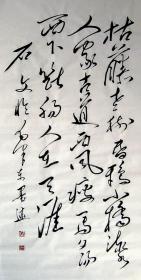 枯藤老树昏鸦小桥流水
人家古道西风瘦马夕阳
西下断肠人在天涯
石文